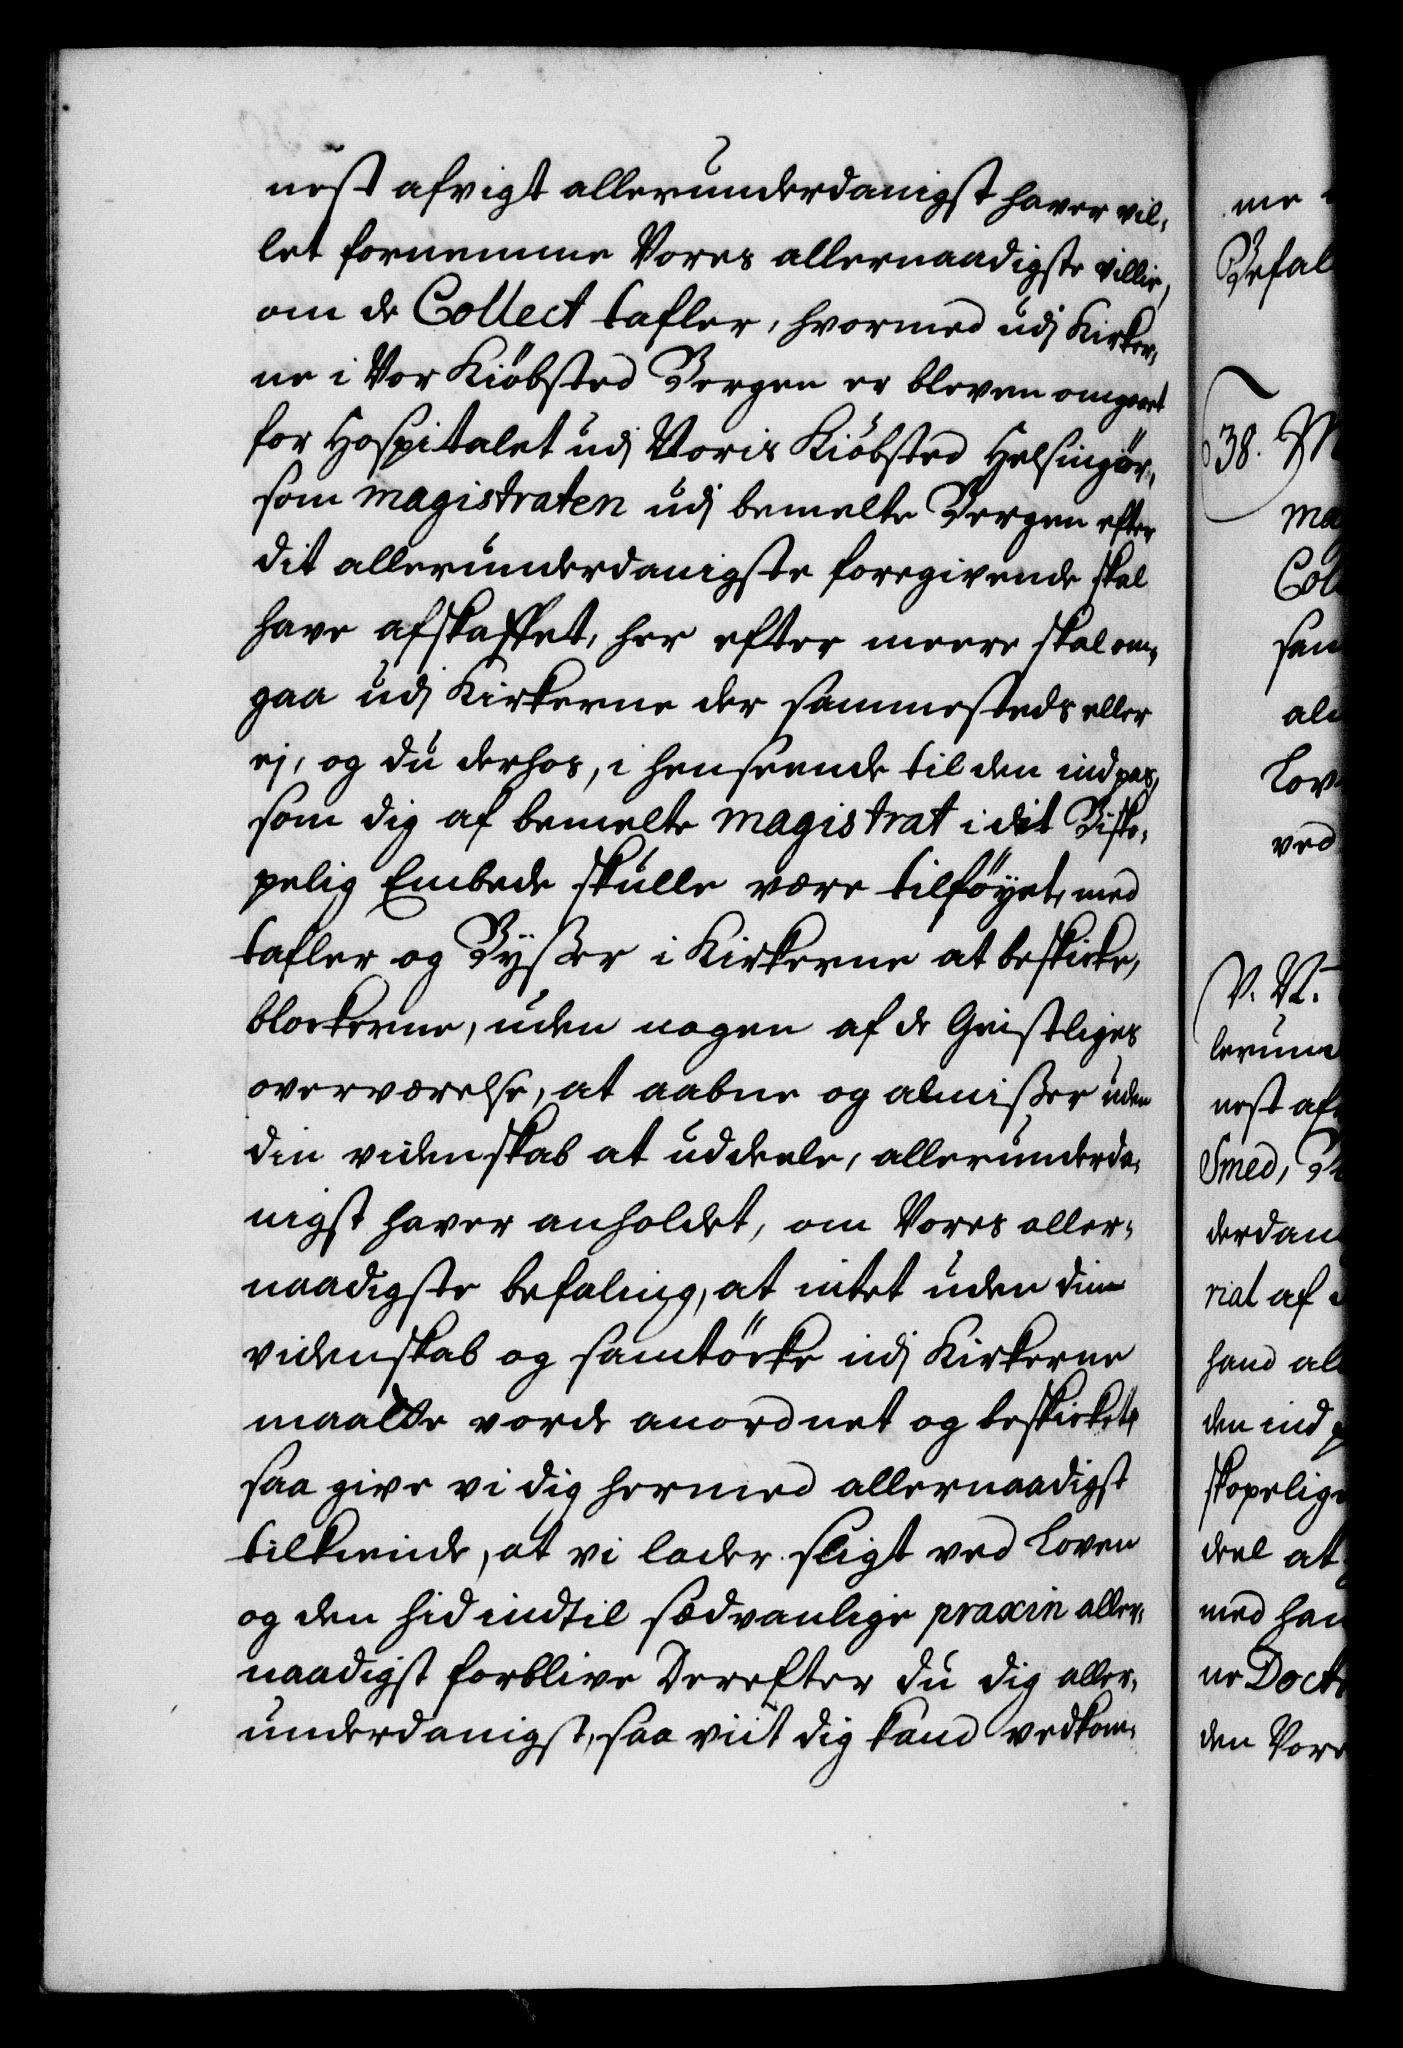 nest afvigt allerunderdanigst haver vil-
let fornemme Vores allernaadigste villie,
om de Collect tafler, hvormed udj Kirker-
ne i Vor Kiöbsted Bergen er bleven omgaaet
for Hospitalet udj Voris Kiöbsted Helsingör,
som magistraten udj bemelte Bergen efter
dit allerunderdanigste foregivende skal
have afskaffet, her efter meere skal om-
gaa udj Kirkerne der sammesteds eller
ej, og du derhos, i henseende til den indpas,
som dig af bemelte magistrat i dit Bisko-
pelig Embede skulle være tilföyet, med
tafler og Bysser i Kirkerne at beskicke,
blockerne, uden nogen af de Geistliges
overværelse, at aabne og almisser uden
din videnskab at uddeele, allerunderda-
nigst haver anholdet, om Vores aller-
naadigste befaling, at intet uden din
videnskab og samtöcke udj Kirkerne
maatte vorde anordnet og beskicket,
saa give vi dig hermed allernaadigst
tilkiende, at vi lader sligt ved Loven
og den hid indtil sædvanlige praxin aller-
naadigst forblive Derefter du dig aller-
underdanigst, saa viit dig kand vedkom-
me
Befal
38. M
mag
Coll
sam
alm
Lov
ved
V. N.
lerund
nest af
Smed, B
derdan
riat af
hand al
den ind p
skopelig
deel at
med han
ne Doct
den Vore